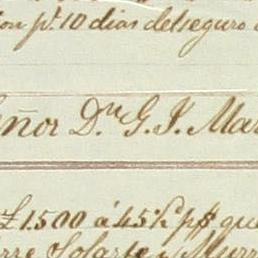 on pr. 10 dias del seguro
eñor Dn. G. J. Mar
£1500 á 45½ p$ que
rre Solarte y Murr